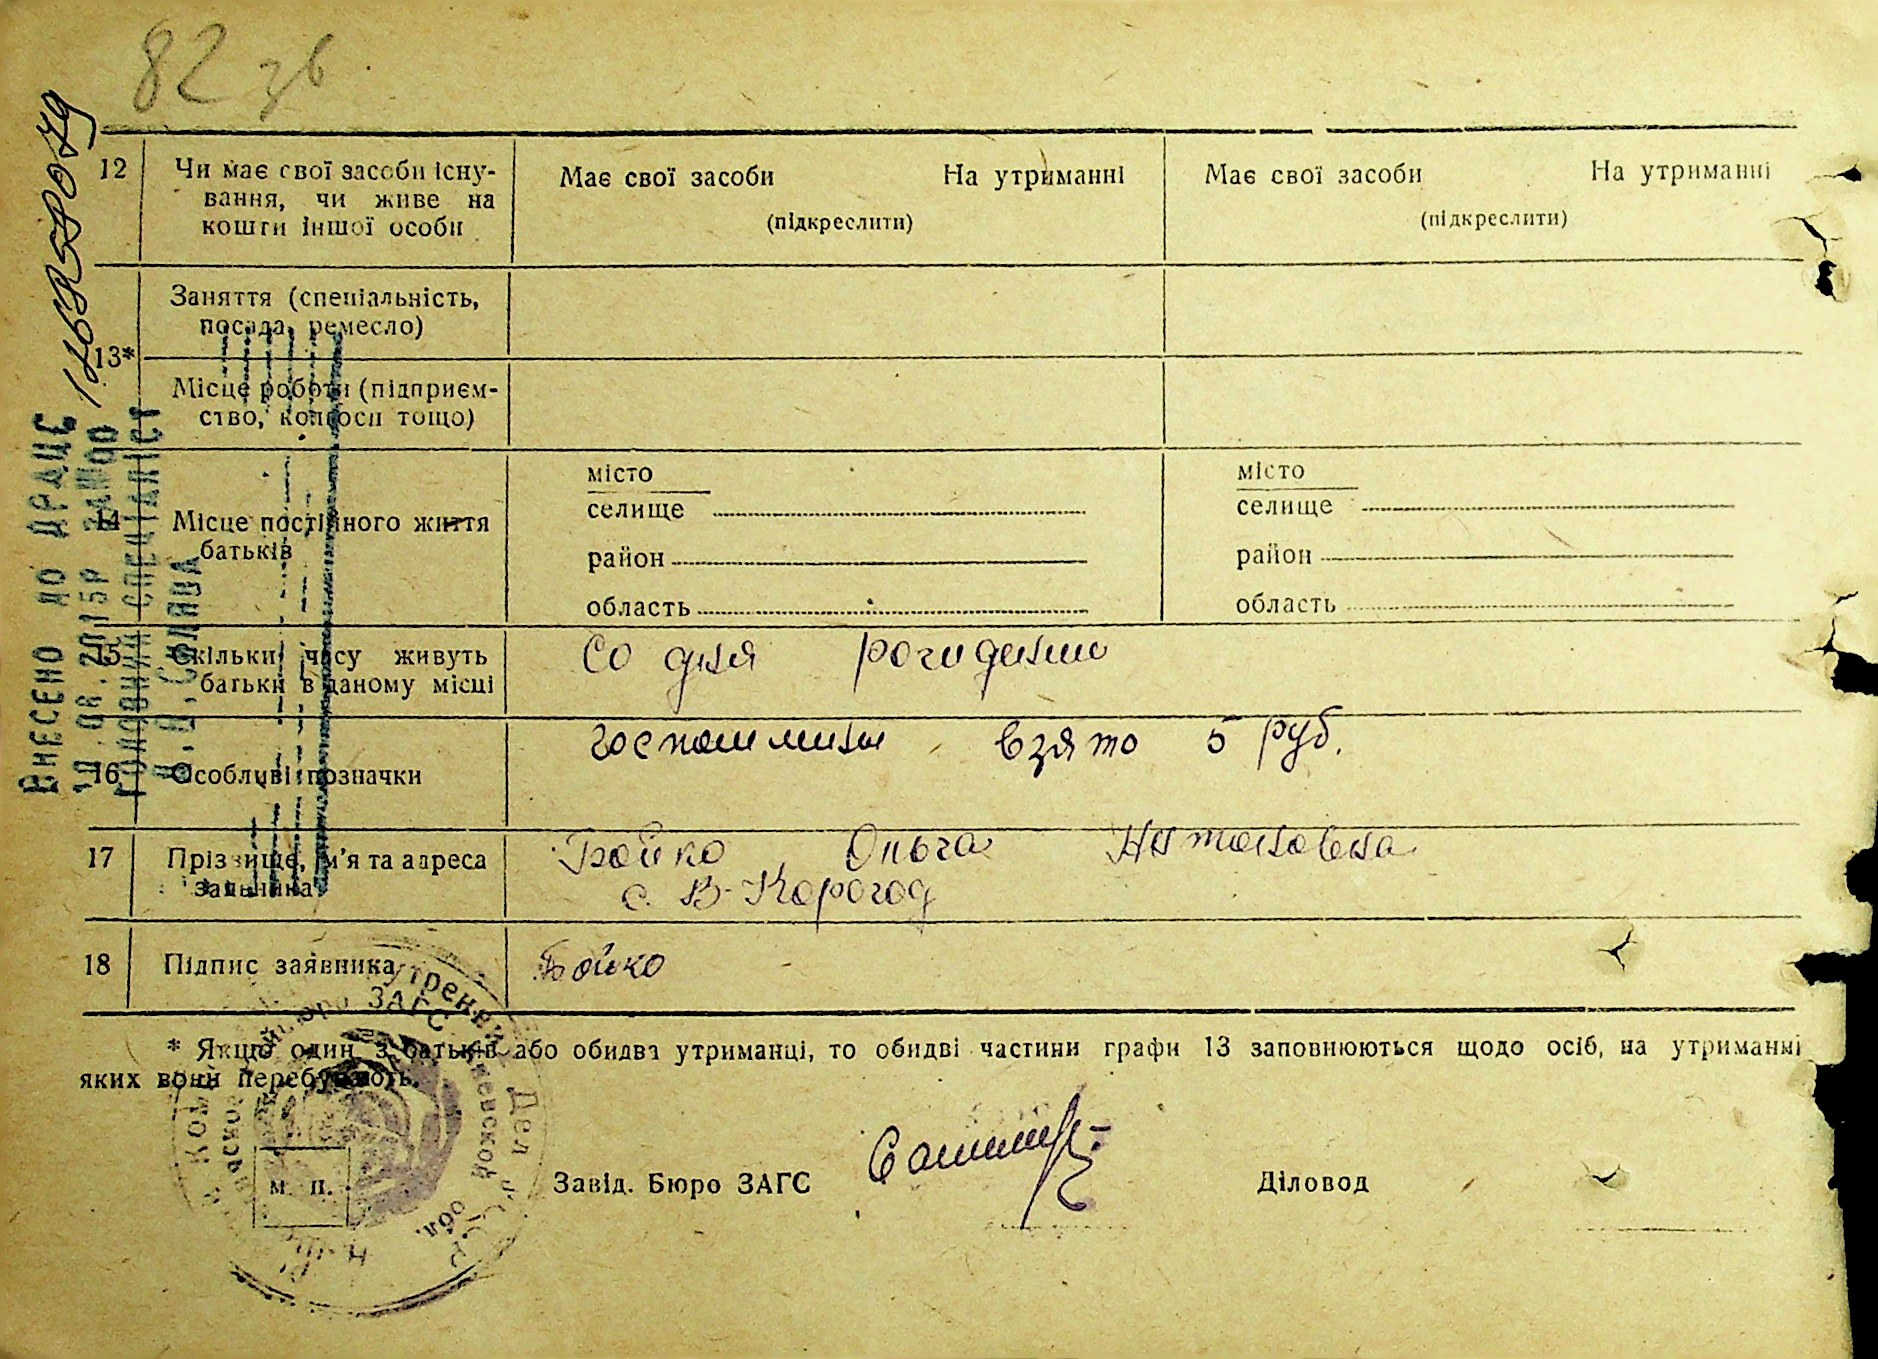 82 зв.
12
Чи має свої засоби існу-
вання, чи живе на
кошти іншої особи
Має свої засоби На утриманні
(підкреслити)
Має свої засоби На утриманні
(підкреслити)
13*
Заняття (спеціальність,
посада, ремесло)
Місце роботи (підприєм-
ство, колгосп тощо)
14
Місце постійного життя
батьків
місто
селище
район
область
місто
селище
район
область
15
Скільки часу живуть
батьки в даному місці
Со дня рождения
16
Особливі позначки
госпошлины взято 5 руб.
17
Прізвище, ім'я та адреса
заявника
Бойко Ольга
с. В-Корогод
18
Підпис заявника
Бойко
* Якщо один з батьків або обидва утриманці, то обидві частини графи 13 заповнюються щодо осіб, на утриманні
яких вони перебувають.
м. п.
Завід. Бюро ЗАГС
Діловод
Внесено до ДРАЦС
.08.2015р
головний спеціаліст
ЗАГС
Дел
обл.